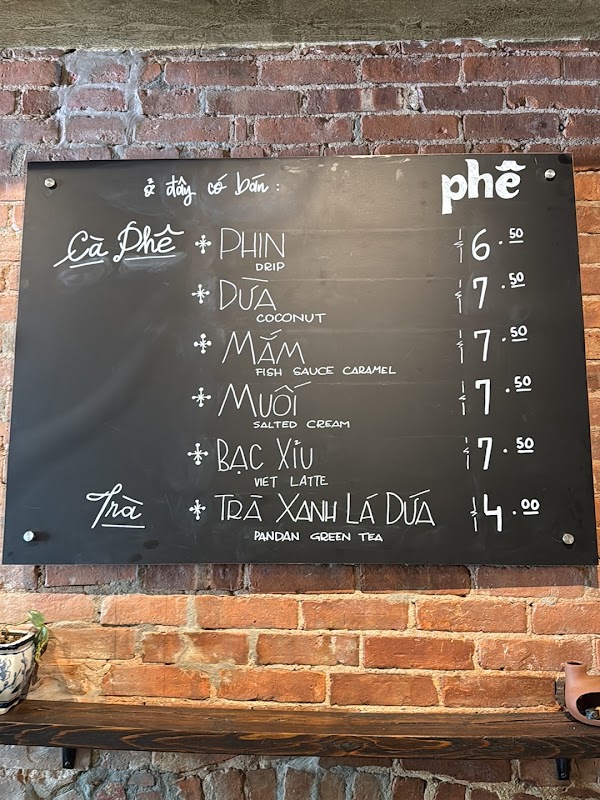 ở đây có bán :
phê
Cà Phê
* PHIN $6.50
DRIP
* DỪA $7.50
COCONUT
* MẮM $7.50
FISH SAUCE CARAMEL
* MUỐI $7.50
SALTED CREAM
* BẠC XỈU $7.50
VIET LATTE
Trà
* TRÀ XANH LÁ DỨA $4.00
PANDAN GREEN TEA